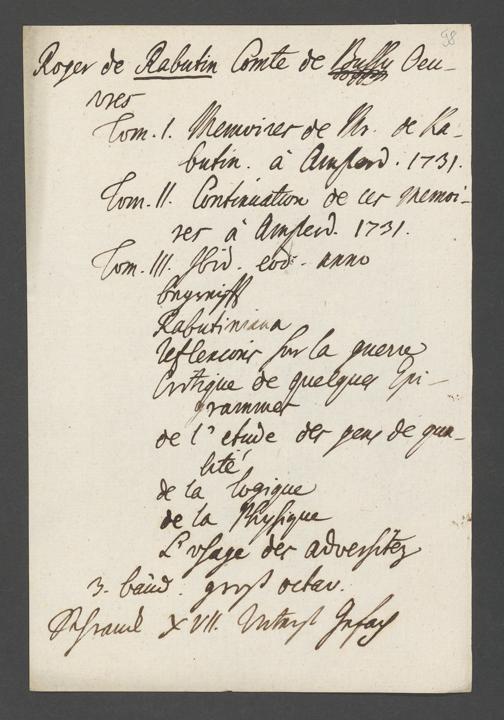 98
Roger de Rabutin Comte de Bussy Oeu-
vres
Tom. I. Memoires de Mr. de Ra-
butin. à Amsterd. 1731.
Tom. II. Continuation de ces Memoi-
res à Amsterd. 1731.
Tom. III. Ibid. eod. anno
begreifft
Rabutiniana
Reflexions sur la guerre
Critique de quelques Epi-
grammes
de l'etude des gens de qua-
lité
de la logique
de la Physique
L'usage des adversitez
3. bänd. groß octav.
Schranck XVII. Unterst Gefach